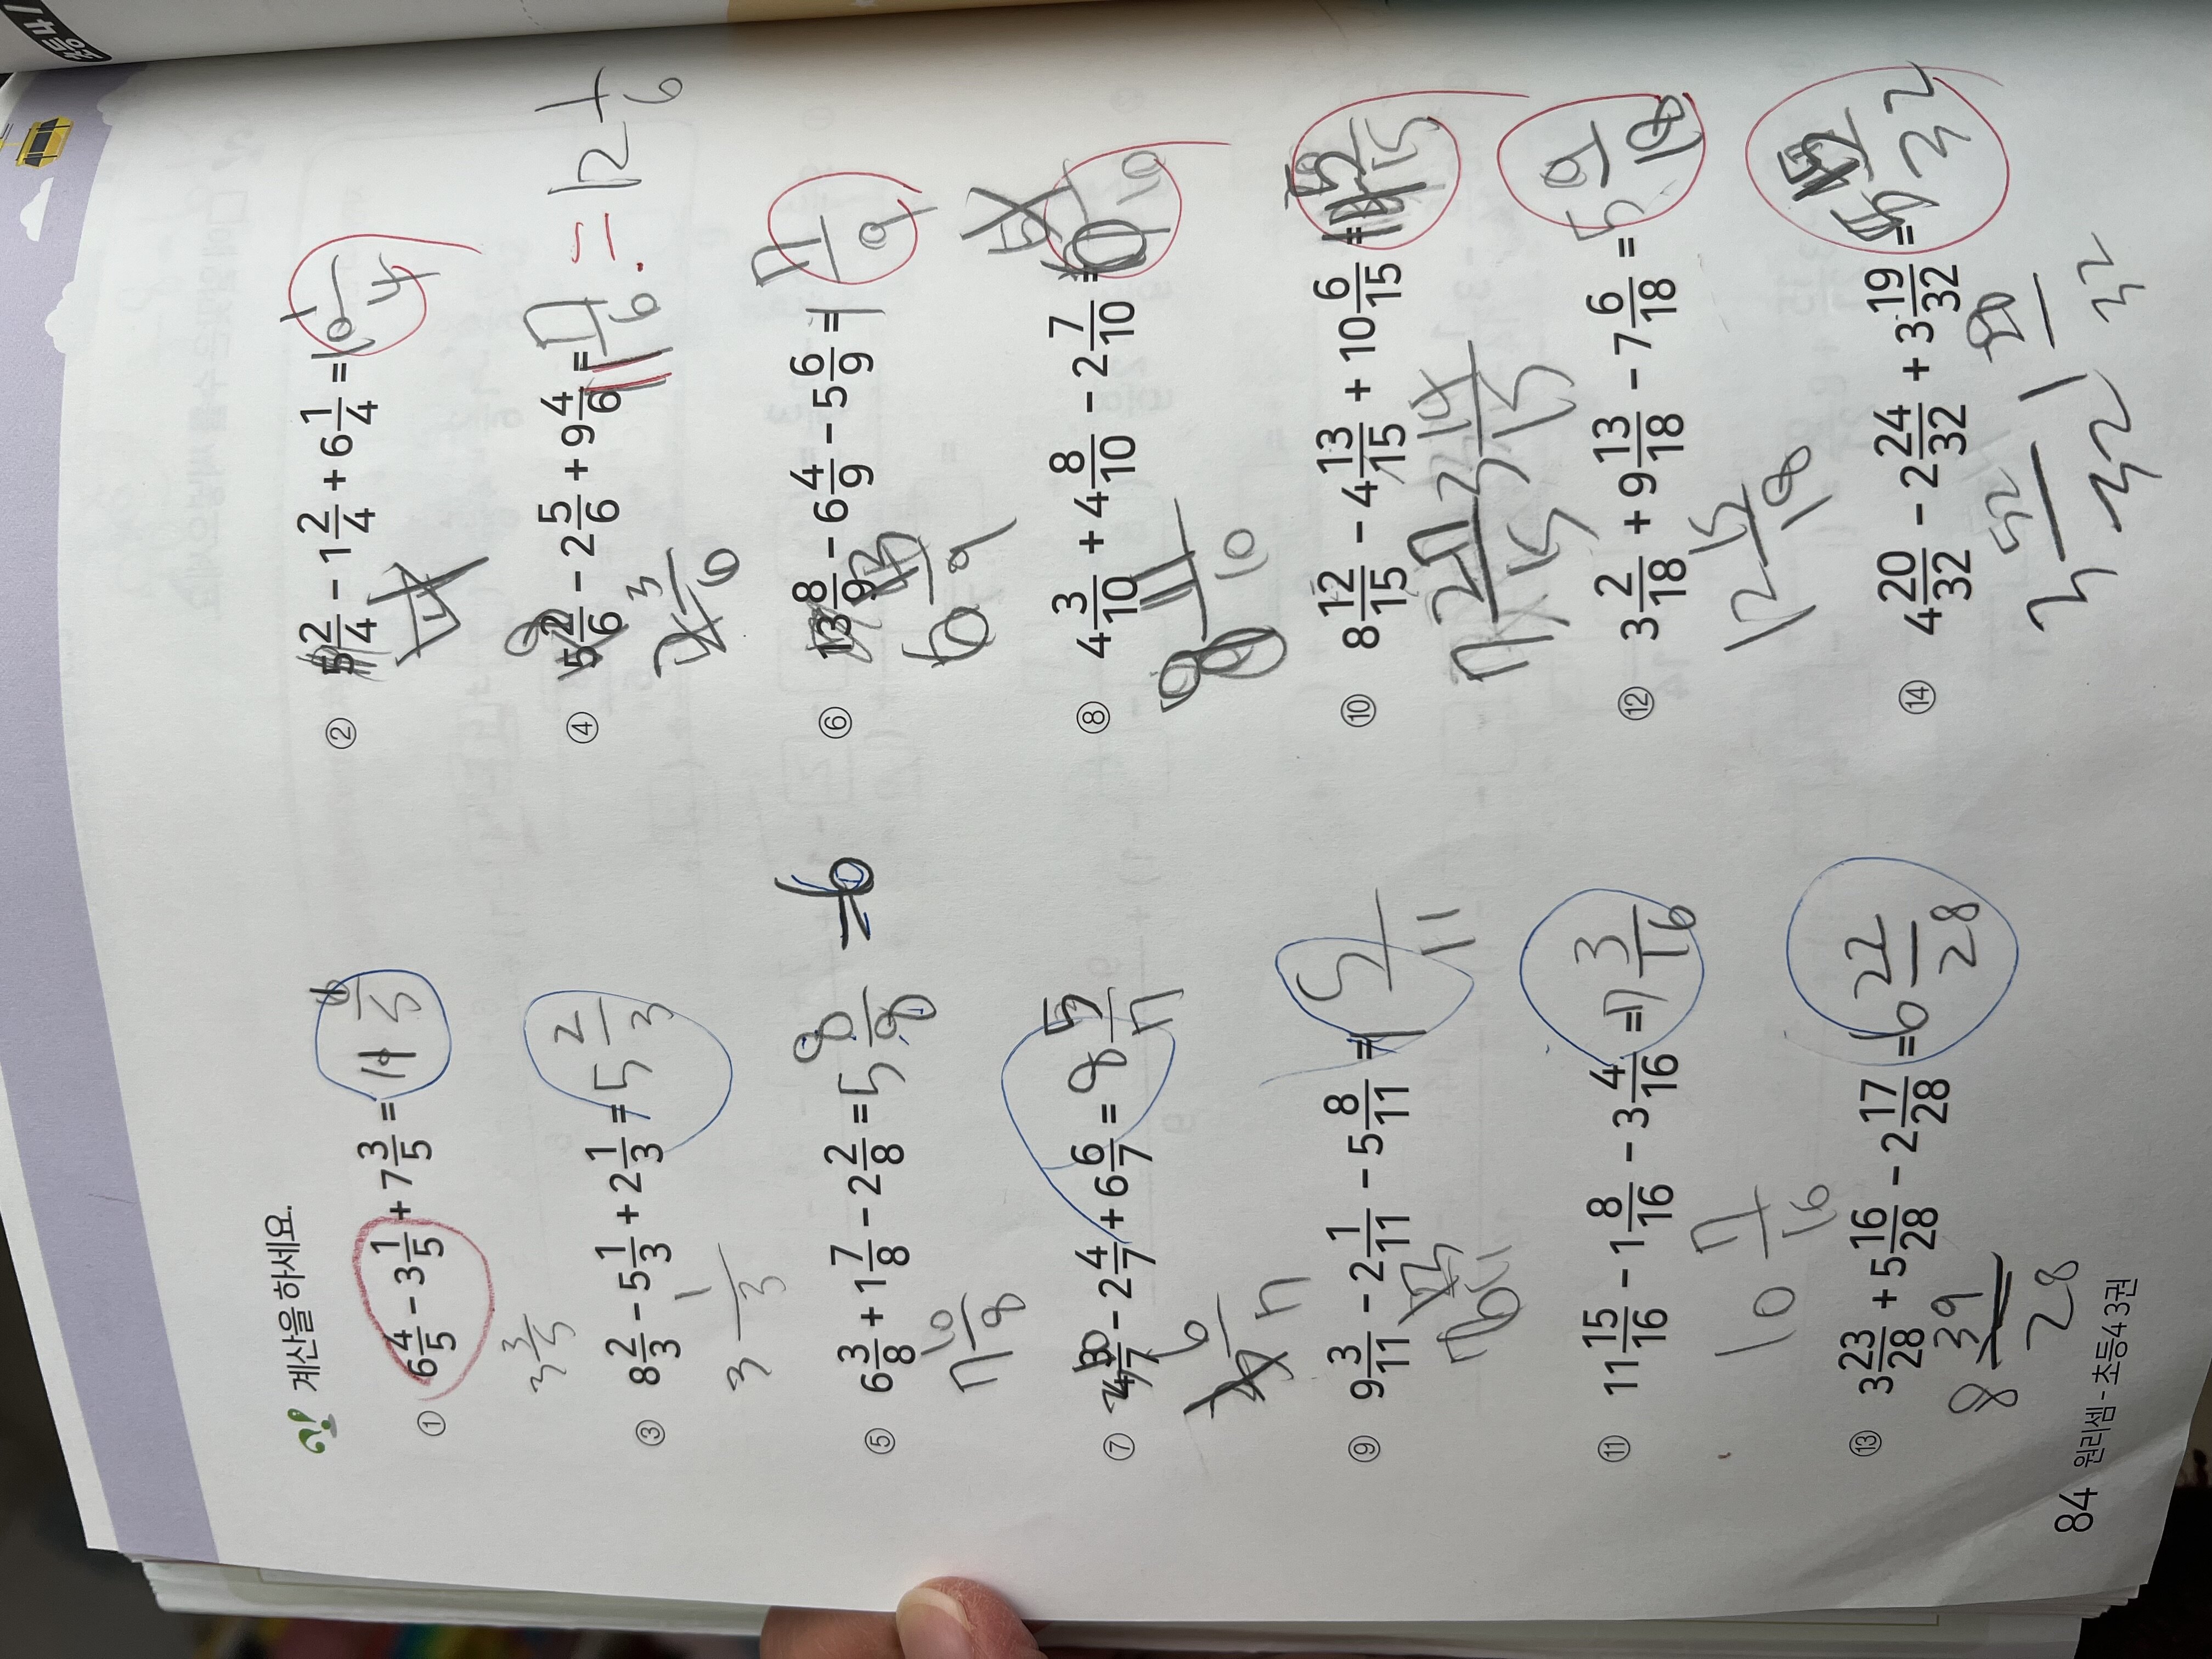 초등4
계산을 하세요.
① 6 4/5 - 3 1/5 + 7 3/5 = 11 1/5
3 3/5
② 5 2/4 - 1 2/4 + 6 1/4 = 10 1/4
4
③ 8 2/3 - 5 1/3 + 2 1/3 = 5 2/3
3 1/3
④ 5 2/6 - 2 5/6 + 9 4/6 = 11 7/6 = 12 1/6
2 3/6
⑤ 6 3/8 + 1 7/8 - 2 2/8 = 5 8/8 = 6
7 10/8
⑥ 13 8/9 - 6 4/9 - 5 6/9 = 1 7/9
6 13/9
⑦ 4 3/7 - 2 4/7 + 6 6/7 = 8 5/7
6/7
⑧ 4 3/10 + 4 8/10 - 2 7/10 =
8 11/10
⑨ 9 3/11 - 2 1/11 - 5 8/11 = 1 5/11
⑩ 8 12/15 - 4 13/15 + 10 6/15 =
3 14/15
⑪ 11 15/16 - 1 8/16 - 3 4/16 = 7 3/16
10 7/16
⑫ 3 2/18 + 9 13/18 - 7 6/18 = 5 9/18
12 15/18
⑬ 3 23/28 + 5 16/28 - 2 17/28 = 6 22/28
8 39/28
⑭ 4 20/32 - 2 24/32 + 3 19/32 =
3 52/32
84 원리셈 - 초등4 3권